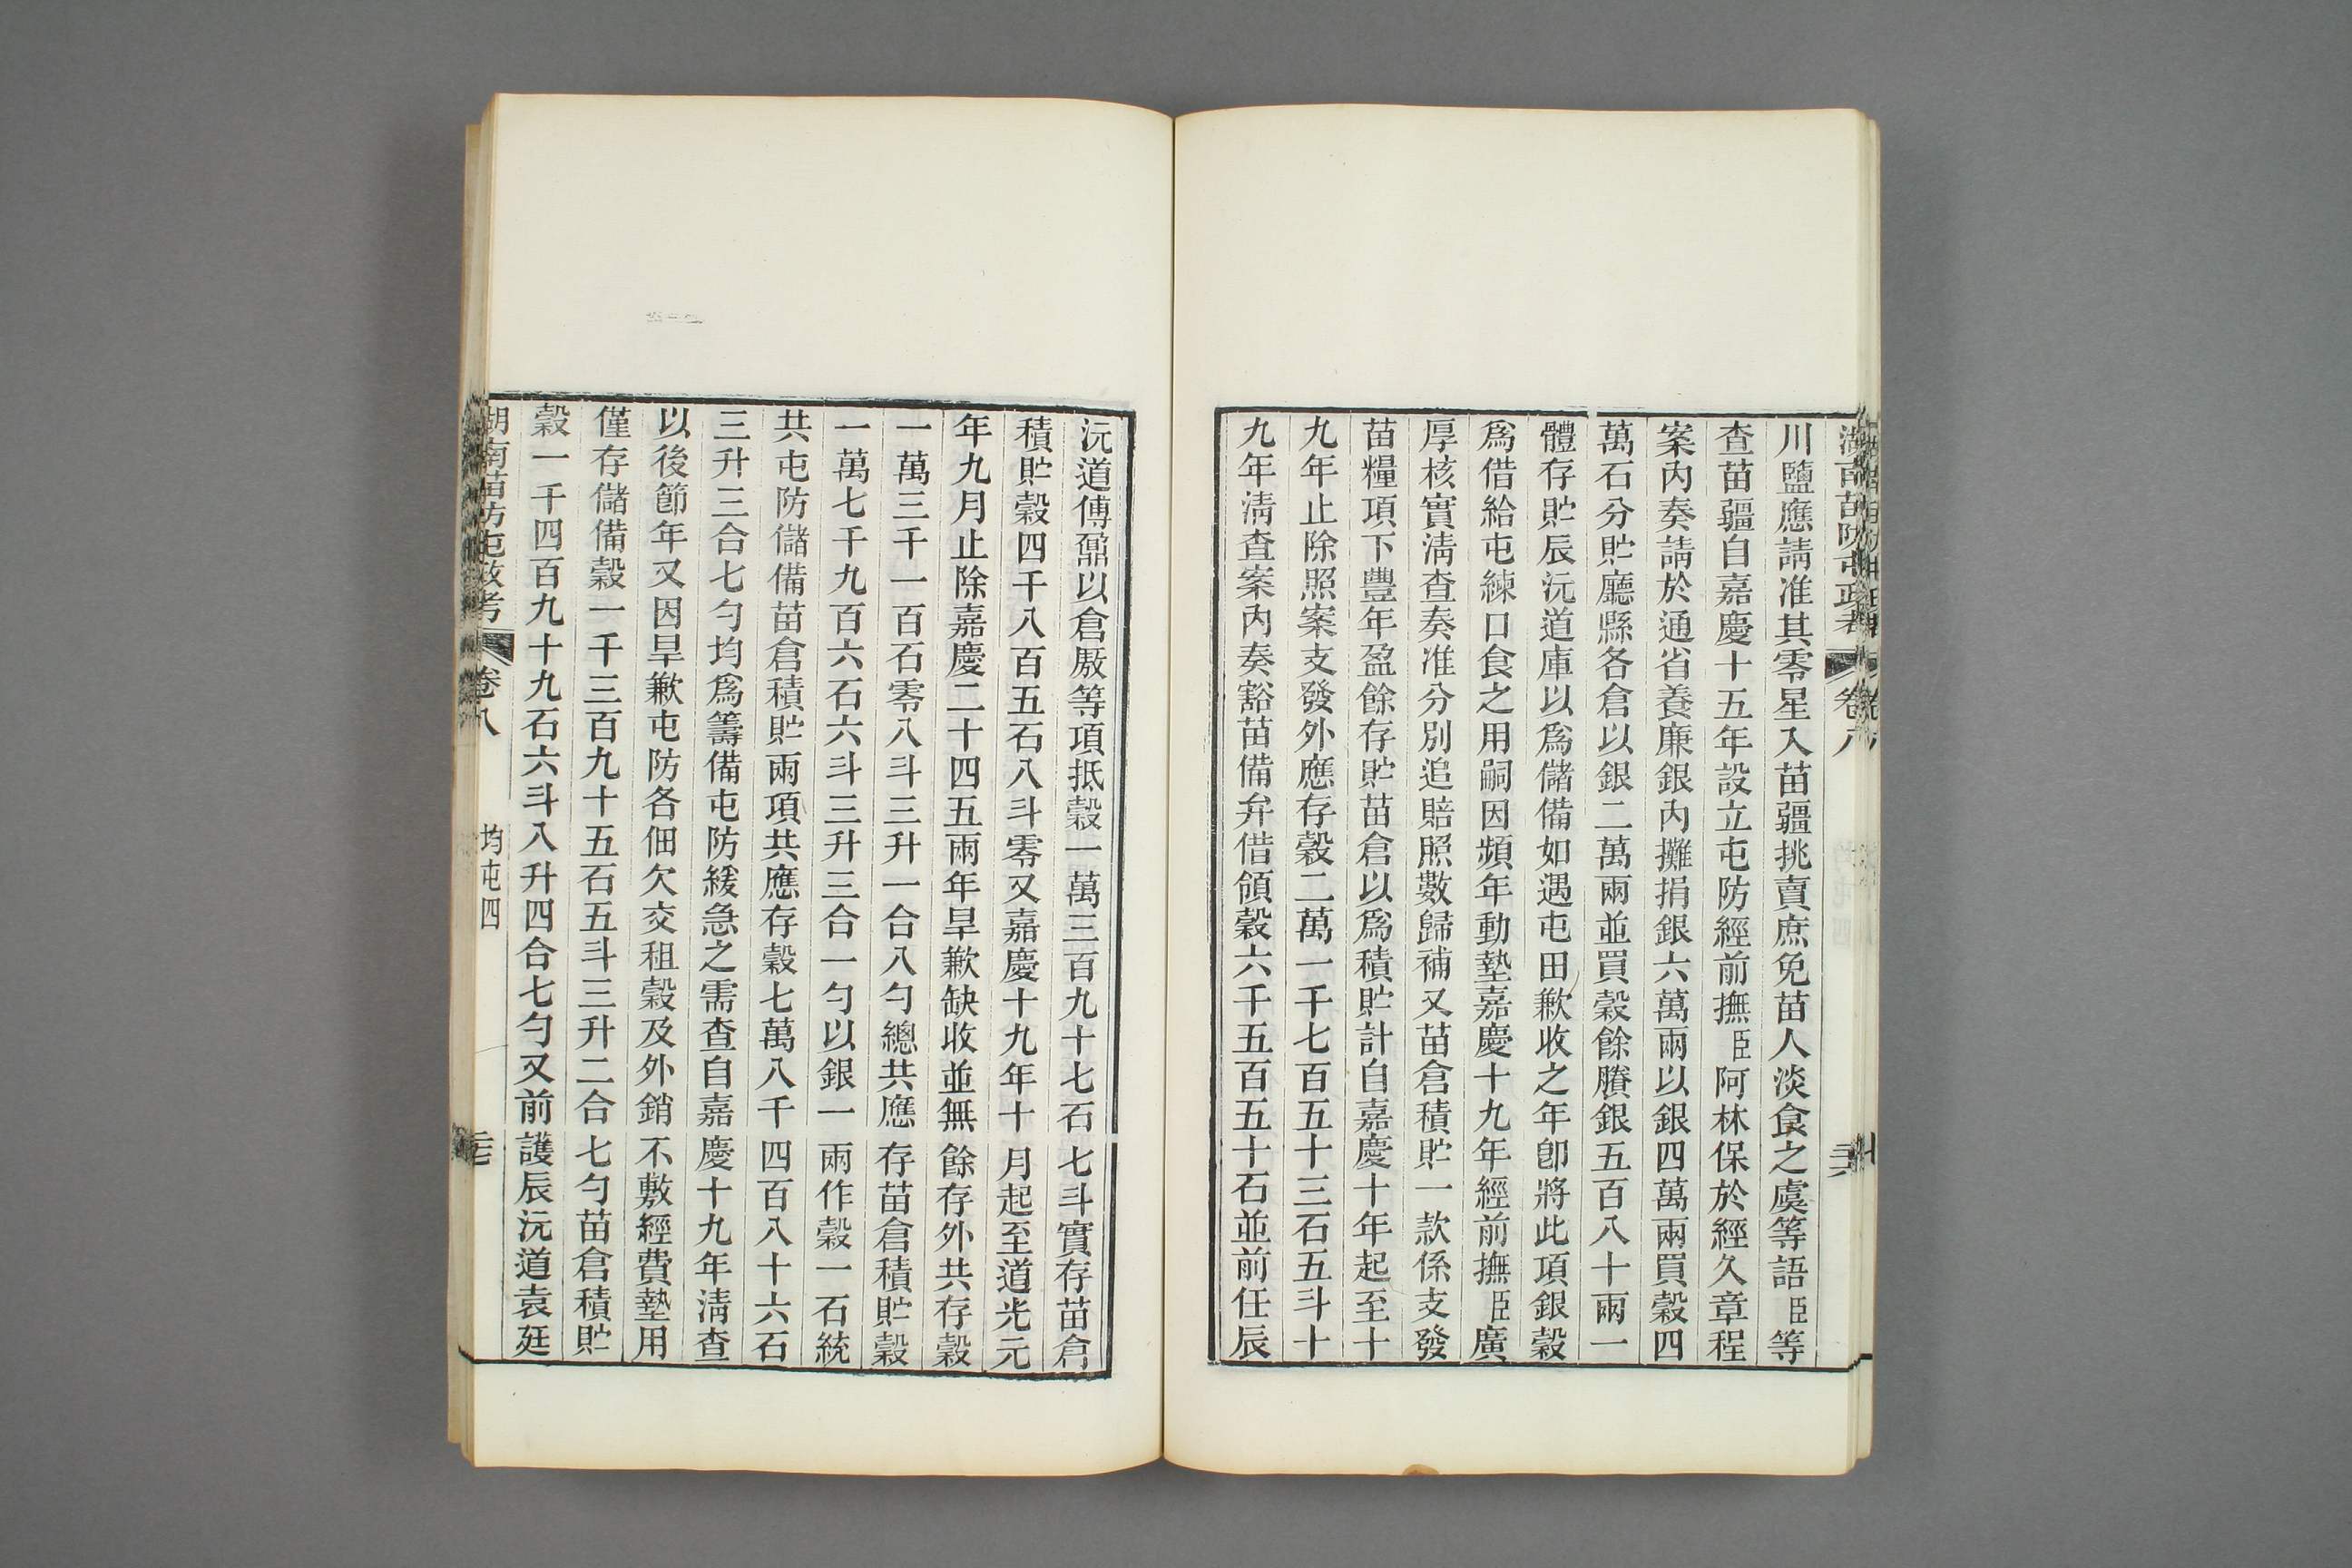 湖南苗防屯政考 卷八
川鹽應請准其零星入苗疆挑賣庶免苗人淡食之虞等語臣等
查苗疆自嘉慶十五年設立屯防經前撫臣阿林保於經久章程
案內奏請於通省養廉銀內攤捐銀六萬兩以銀四萬兩買穀四
萬石分貯廳縣各倉以銀二萬兩並買穀餘賸銀五百八十兩一
體存貯辰沅道庫以爲儲備如遇屯田歉收之年卽將此項銀穀
爲借給屯練口食之用嗣因頻年動墊嘉慶十九年經前撫臣廣
厚核實淸查奏准分別追賠照數歸補又苗倉積貯一款係支發
苗糧項下豐年盈餘存貯苗倉以爲積貯計自嘉慶十年起至十
九年止除照案支發外應存穀二萬一千七百五十三石五斗十
九年淸查案內奏豁苗備弁借領穀六千五百五十石並前任辰
沅道傅鼐以倉厫等項抵穀一萬三百九十七石七斗實存苗倉
積貯穀四千八百五石八斗零又嘉慶十九年十月起至道光元
年九月止除嘉慶二十四五兩年旱歉缺收並無餘存外共存穀
一萬三千一百石零八斗三升一合八勺總共應存苗倉積貯穀
一萬七千九百六石六斗三升三合一勺以銀一兩作穀一石統
共屯防儲備苗倉積貯兩項共應存穀七萬八千四百八十六石
三升三合七勺均爲籌備屯防緩急之需查自嘉慶十九年淸查
以後節年又因旱歉屯防各佃欠交租穀及外銷不敷經費墊用
僅存儲備穀一千三百九十五石五斗三升二合七勺苗倉積貯
穀一千四百九十九石六斗八升四合七勺又前護辰沅道袁廷
湖南苗防屯政考 卷八 均屯四 二七